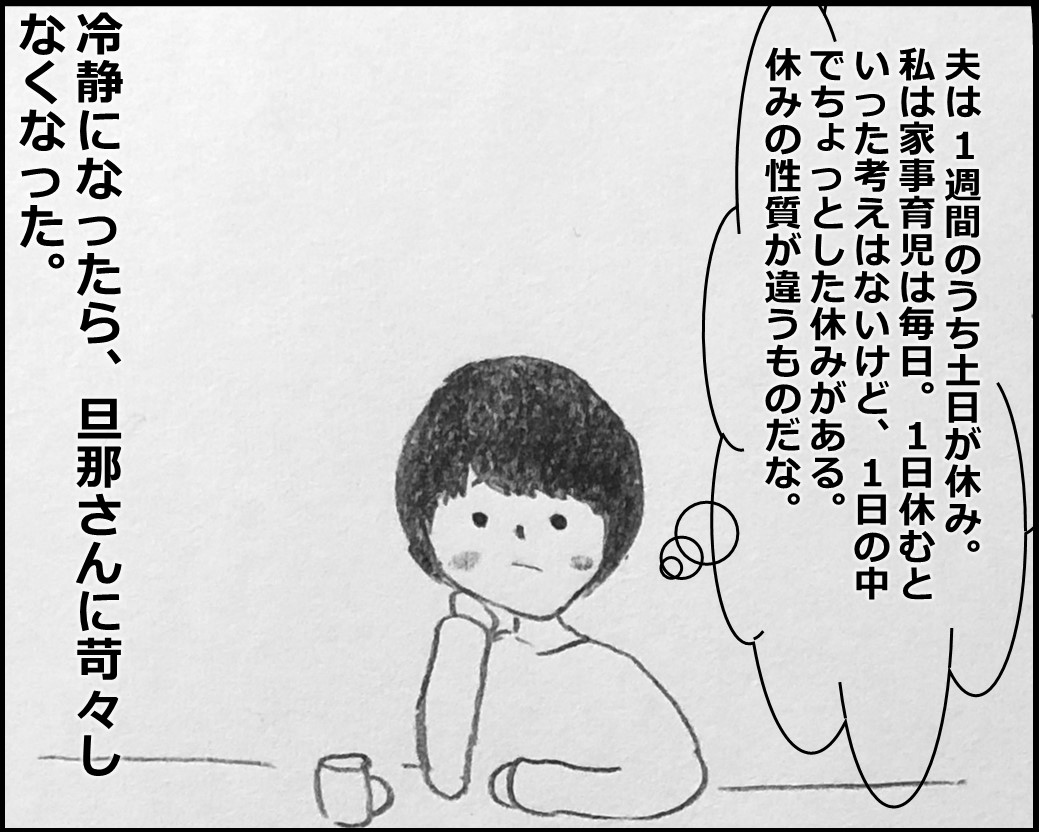 夫は1週間のうち土日が休み。
私は家事育児は毎日。1日休むと
いった考えはないけど、1日の中
でちょっとした休みがある。
休みの性質が違うものだな。
冷静になったら、旦那さんに苛々し
なくなった。